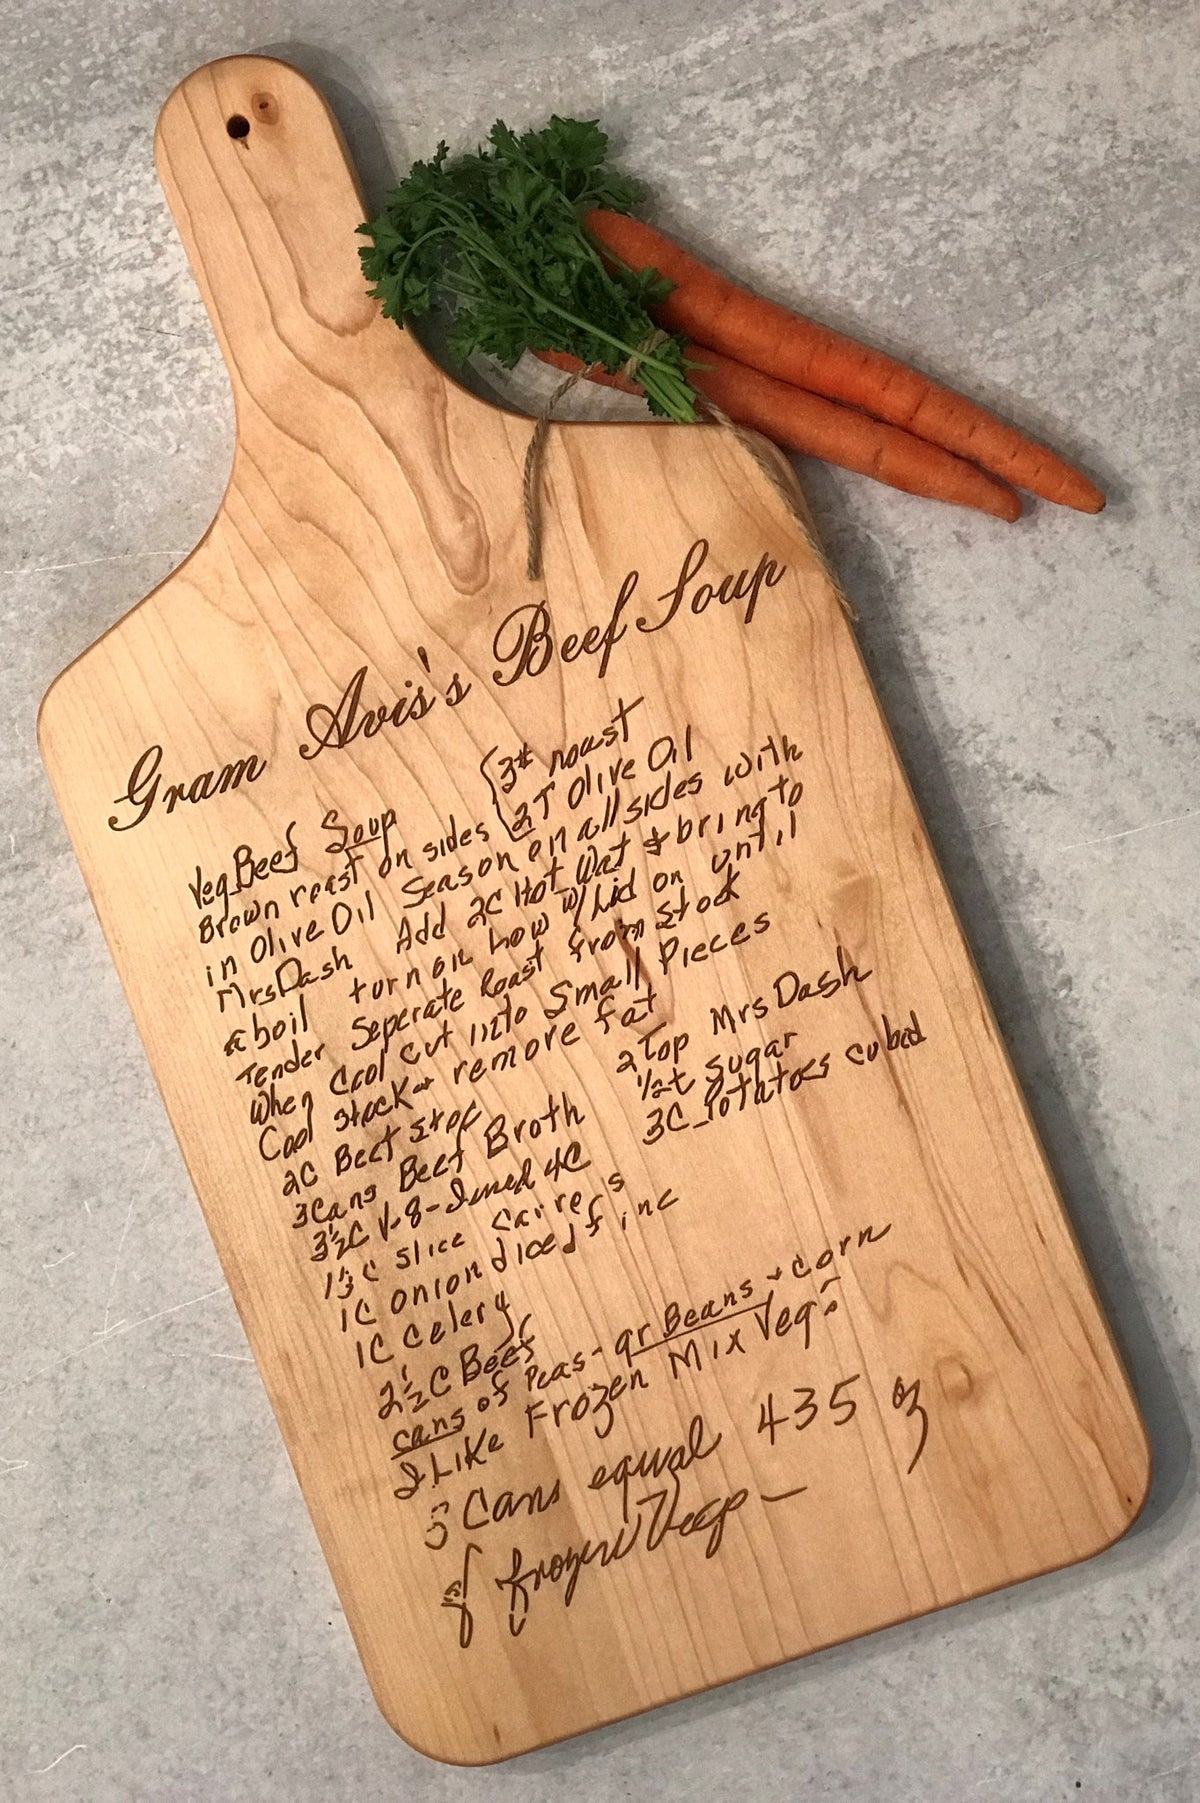 Gram Avis's Beef Soup
Veg Beef Soup {3# roast
Brown roast on sides {2T Olive Oil
in Olive Oil Season on all sides with
MrsDash Add 2C Hot Wat & bring to
a boil turn on Low w/Lid on until
Tender Seperate Roast from Stock
When Cool Cut into Small Pieces
Cool Stock & remove fat
2C Beef Stock
2 Tsp Mrs Dash
3Cans Beef Broth
1/2t Sugar
3½C V-8- 4C
3C Potatoes cubed
1½C slice Carrers
1C onion diced f inc
1C Celery
2½C Beef
cans of Peas - gr Beans + corn
I Like Frozen Mix Veg.
3 Cans equal 435 oz
of frozen Veg -